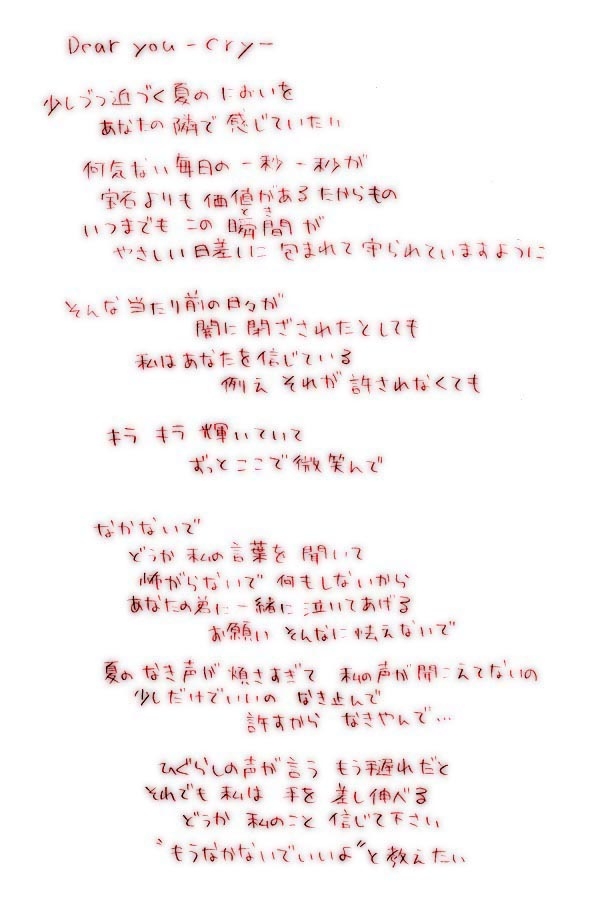 Dear you -cry-
少しづつ近づく夏のにおいを
あなたの隣で感じていたい
何気ない毎日の一秒一秒が
宝石よりも価値があるたからもの
とき
いつまでもこの瞬間が
やさしい日差しに包まれて守られていますように
そんな当たり前の日々が
闇に閉ざされたとしても
私はあなたを信じている
例えそれが許されなくても
キラキラ輝いていて
ずっとここで微笑んで
なかないで
どうか私の言葉を聞いて
怖がらないで何もしないから
あなたの為に一緒に泣いてあげる
お願いそんなに怯えないで
夏のなき声が煩さすぎて 私の声が聞こえてないの
少しだけでいいの なき止んで
許すから なきやんで…
ひぐらしの声が言う もう手遅れだと
それでも私は手を差し伸べる
どうか私のこと信じて下さい
〝もうなかないでいいよ〟と教えたい